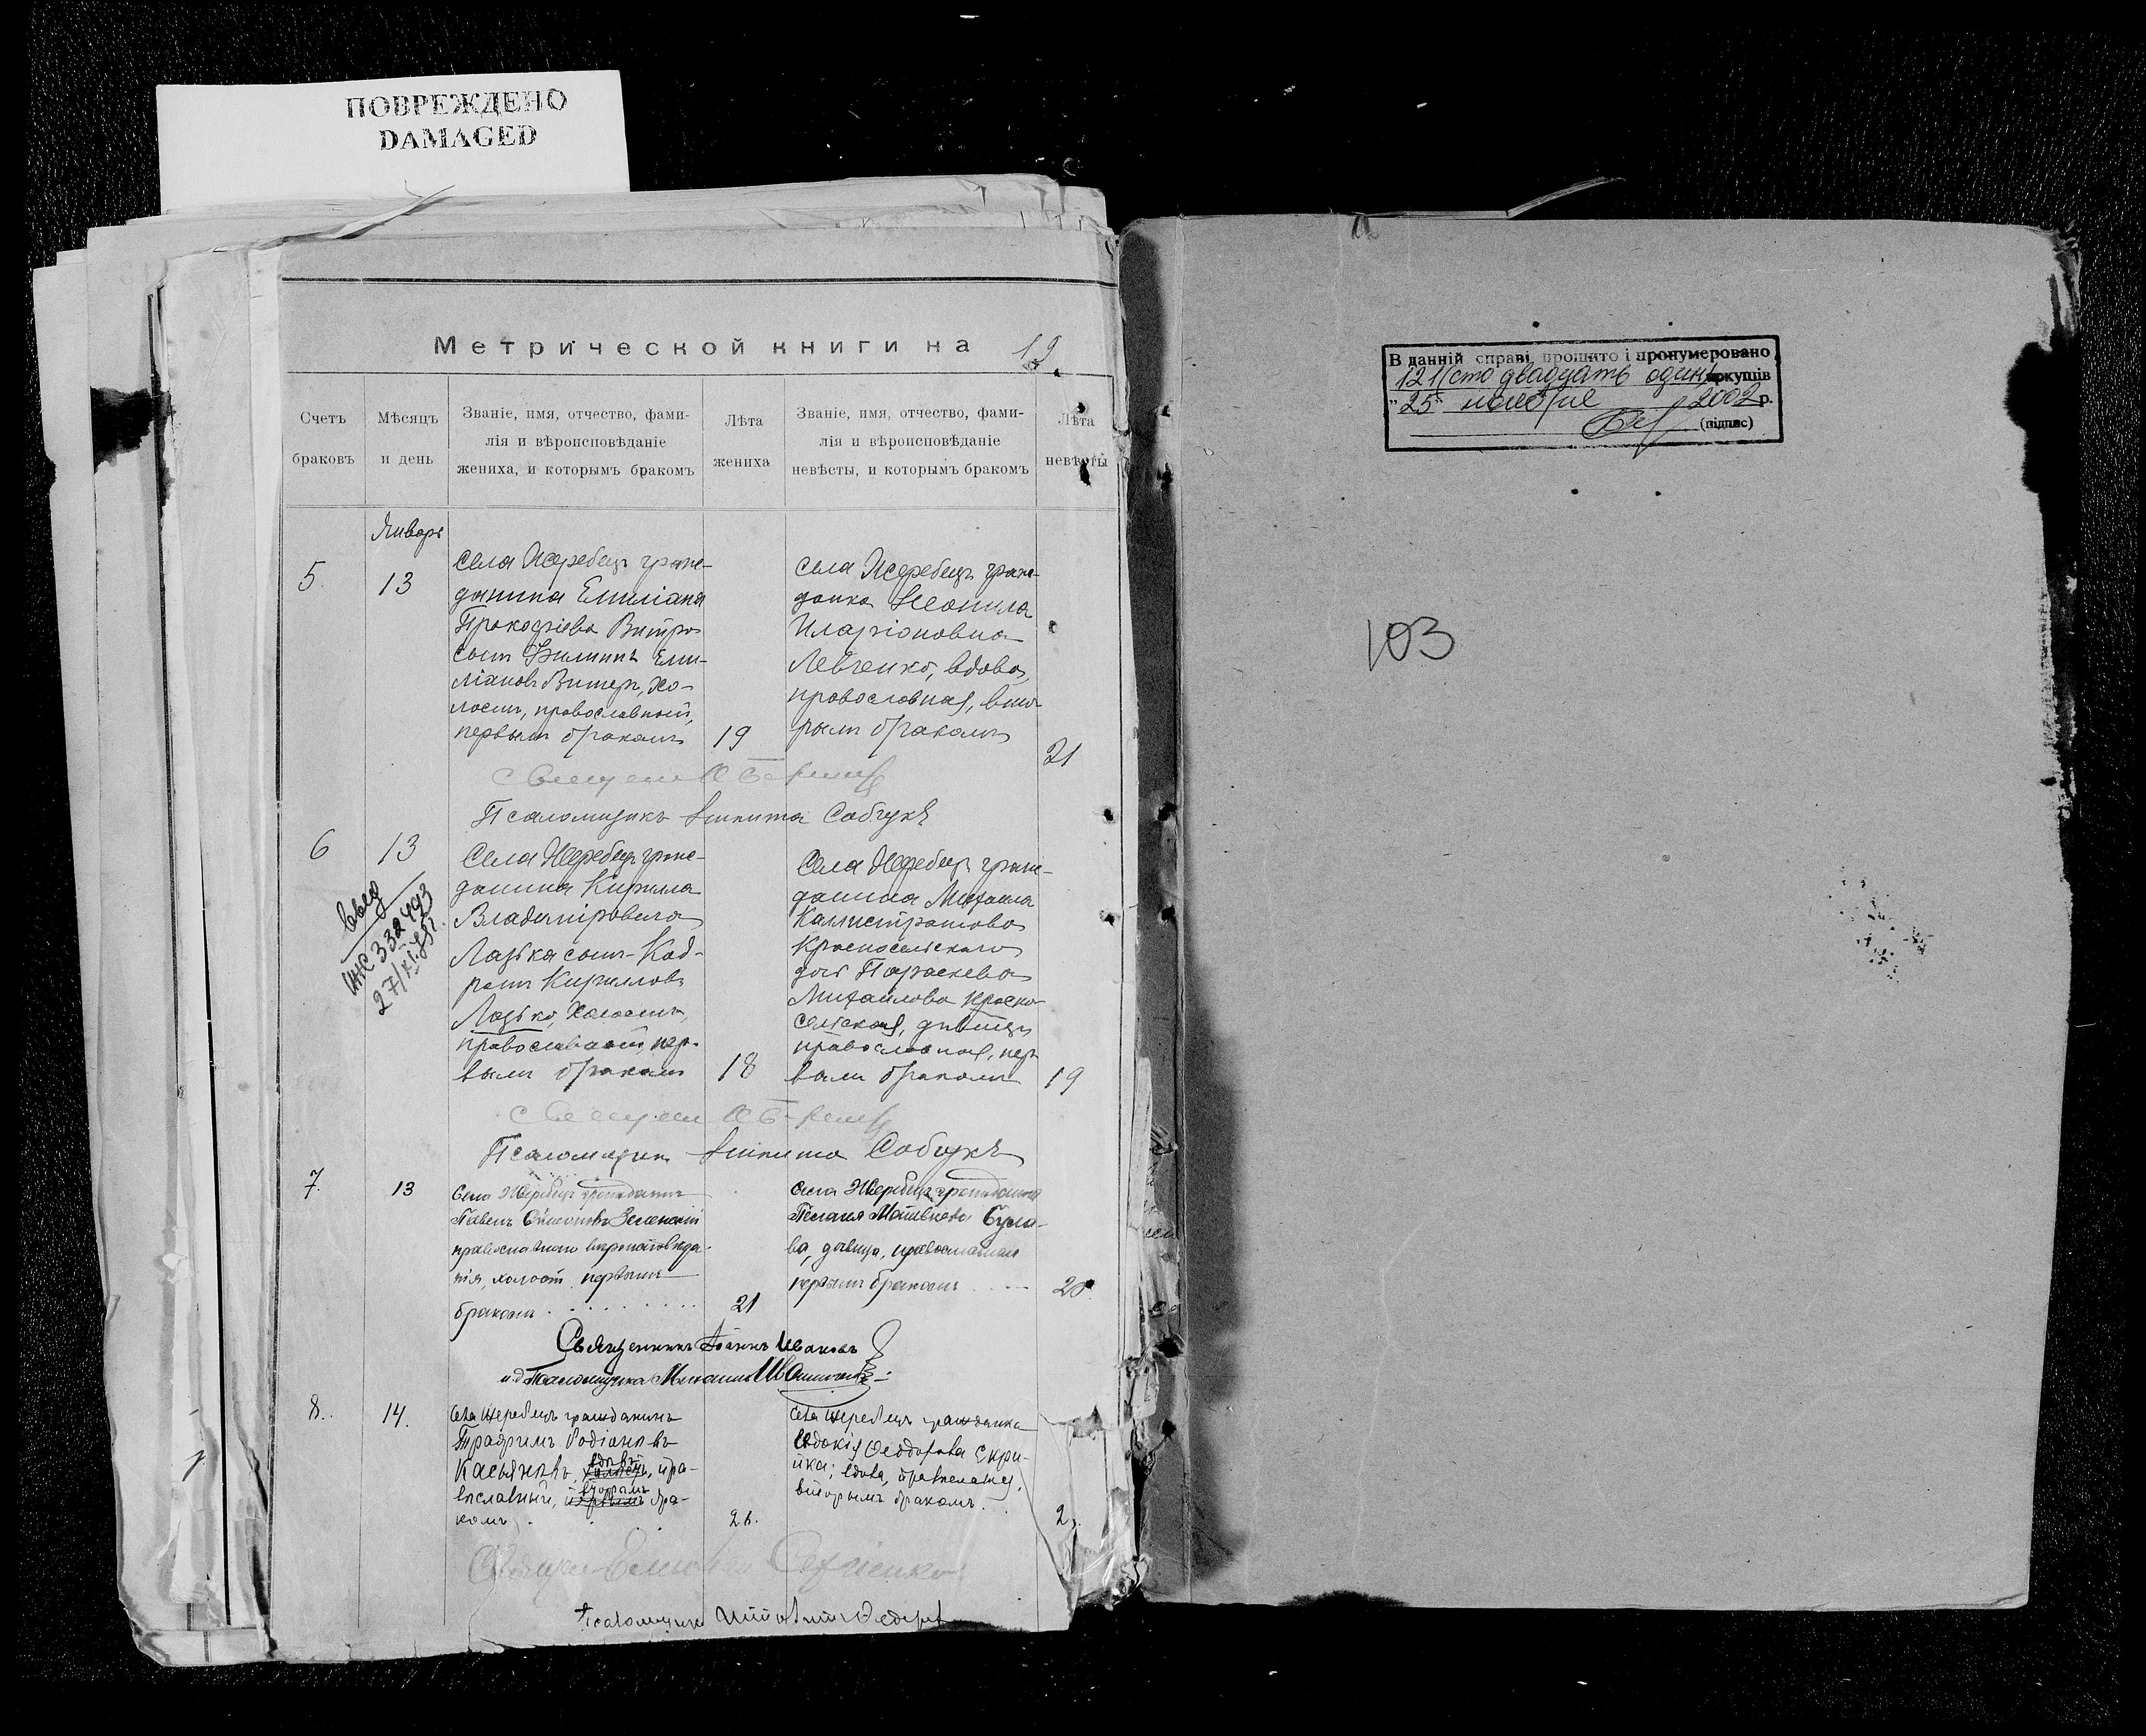 ПОВРЕЖДЕНО
DAMAGED
Метрической книги на 19
Счетъ
браковъ
Мѣсяцъ
и день
Званіе, имя, отчество, фами-
лія и вѣроисповѣданіе
жениха, и которымъ бракомъ
Лѣта
жениха
Званіе, имя, отчество, фами-
лія и вѣроисповѣданіе
невѣсты, и которымъ бракомъ
Лѣта
невѣсты
Январь
5.
13
Села Жеребецъ граж-
данина Емиліана
Прокофіева Витра
сынъ Филиппъ Еми-
ліановъ Витеръ, хо-
лостъ, православный,
первымъ бракомъ
19
Села Жеребецъ граж-
данка Неонила
Иларіоновна
Левченко, вдова,
православная, вто-
рымъ бракомъ
21
Псаломщикъ Никита Собчукъ
6
13
ЖС 332493
Села Жеребецъ граж-
данина Кирилла
Владимірова
Лазька сынъ Код-
ратъ Кирилловъ
Лазько, холостъ,
православный, пер-
вымъ бракомъ
18
Села Жеребецъ граж-
данина Михаила
Каллистратова
Красносельскаго
дочь Параскева
Михайлова Красно-
сельская, дѣвица
православная, пер-
вымъ бракомъ
19
Псаломщикъ Никита Собчукъ
7.
13
Села Жеребецъ гражданинъ
Павелъ Зеленскій
православнаго вѣроисповѣда-
нія, холостъ, первымъ
бракомъ
21
Села Жеребецъ гражданка
Пелагея Матвѣева Була-
ва, дѣвица, православная
первымъ бракомъ
20
Священникъ Іоаннъ Ивановъ
и.д. Псаломщика Михаилъ
8.
14.
Села Жеребецъ гражданинъ
Трофимъ Родіоновъ
Касьяновъ, вдовъ, пра-
вославный, вторымъ бра-
комъ
26.
Села Жеребецъ гражданка
Евдокія Феодорова Скри-
пка; вдова, православная,
вторымъ бракомъ.
Сергіенко
Псаломщикъ
В данній справі прошито і пронумеровано
121 (сто двадцать один) аркушів
"25" ноября 2002 р.
(підпис)
103